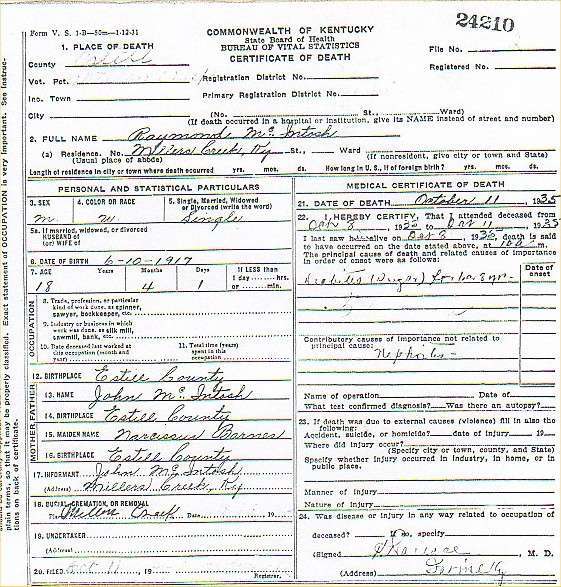 24210
Form V. S. 1-B—50m—1-12-31
COMMONWEALTH OF KENTUCKY
State Board of Health
BUREAU OF VITAL STATISTICS
CERTIFICATE OF DEATH
1. PLACE OF DEATH
File No.
County Estill
Registered No.
Vot. Pct.
Registration District No.
Inc. Town
Primary Registration District No.
City (No. St., Ward)
(If death occurred in a hospital or institution, give its NAME instead of street and number)
2. FULL NAME Raymond Mc Intosh
(a) Residence. No. Millers Creek, Ky St., Ward
(Usual place of abode) (If nonresident, give city or town and State)
Length of residence in city or town where death occurred yrs. mos. ds. How long in U. S., if of foreign birth? yrs. mos. ds.
PERSONAL AND STATISTICAL PARTICULARS
3. SEX
m
4. COLOR OR RACE
w
5. Single, Married, Widowed
or Divorced (write the word)
Single
5a. If married, widowed, or divorced
HUSBAND of
(or) WIFE of
6. DATE OF BIRTH 6-10-1917
7. AGE Years Months Days If LESS than
1 day hrs.
or min.
18 4 1
OCCUPATION
8. Trade, profession, or particular
kind of work done, as spinner,
sawyer, bookkeeper, etc.
9. Industry or business in which
work was done, as silk mill,
sawmill, bank, etc.
10. Date deceased last worked at
this occupation (month and
year)
11. Total time (years)
spent in this
occupation
12. BIRTHPLACE Estill County
FATHER
13. NAME John Mc Intosh
14. BIRTHPLACE Estill County
MOTHER
15. MAIDEN NAME Narcissus Barnes
16. BIRTHPLACE Estill County
17. INFORMANT John Mc Intosh
(Address) Millers Creek, Ky
18. BURIAL, CREMATION, OR REMOVAL
Place Millers Creek Date 19
19. UNDERTAKER
(Address)
20. FILED 19
Registrar.
MEDICAL CERTIFICATE OF DEATH
21. DATE OF DEATH October 11, 1935
22. I HEREBY CERTIFY, That I attended deceased
from Oct 8, 1935 to Oct 1935
I last saw h alive on Oct 8, 1935, death is said
to have occurred on the date stated above, at m.
The principal cause of death and related causes of importance
in order of onset were as follows:
Date of
onset
(Sugar)
Contributory causes of importance not related to
principal cause:
Nephritis
Name of operation Date of
What test confirmed diagnosis? Was there an autopsy?
23. If death was due to external causes (violence) fill in also the
following:
Accident, suicide, or homicide? date of injury 19
Where did injury occur?
(Specify city or town, county, and State)
Specify whether injury occurred in industry, in home, or in
public place.
Manner of injury
Nature of injury
24. Was disease or injury in any way related to occupation of
deceased? If so, specify
(Signed) M. D.
(Address) Irvine Ky